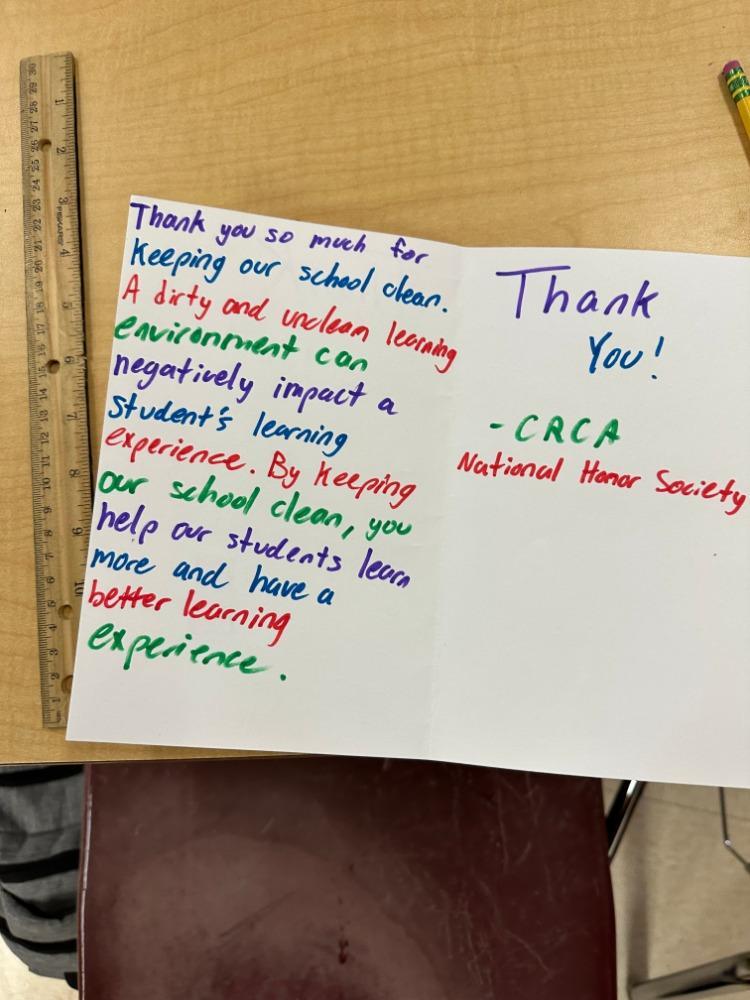 Thank you so much for
Keeping our school clean.
A dirty and unclean learning
environment can
negatively impact a
student's learning
experience. By Keeping
our school clean, you
help our students learn
more and have a
better learning
experience.
Thank
You!
- CRCA
National Honor Society